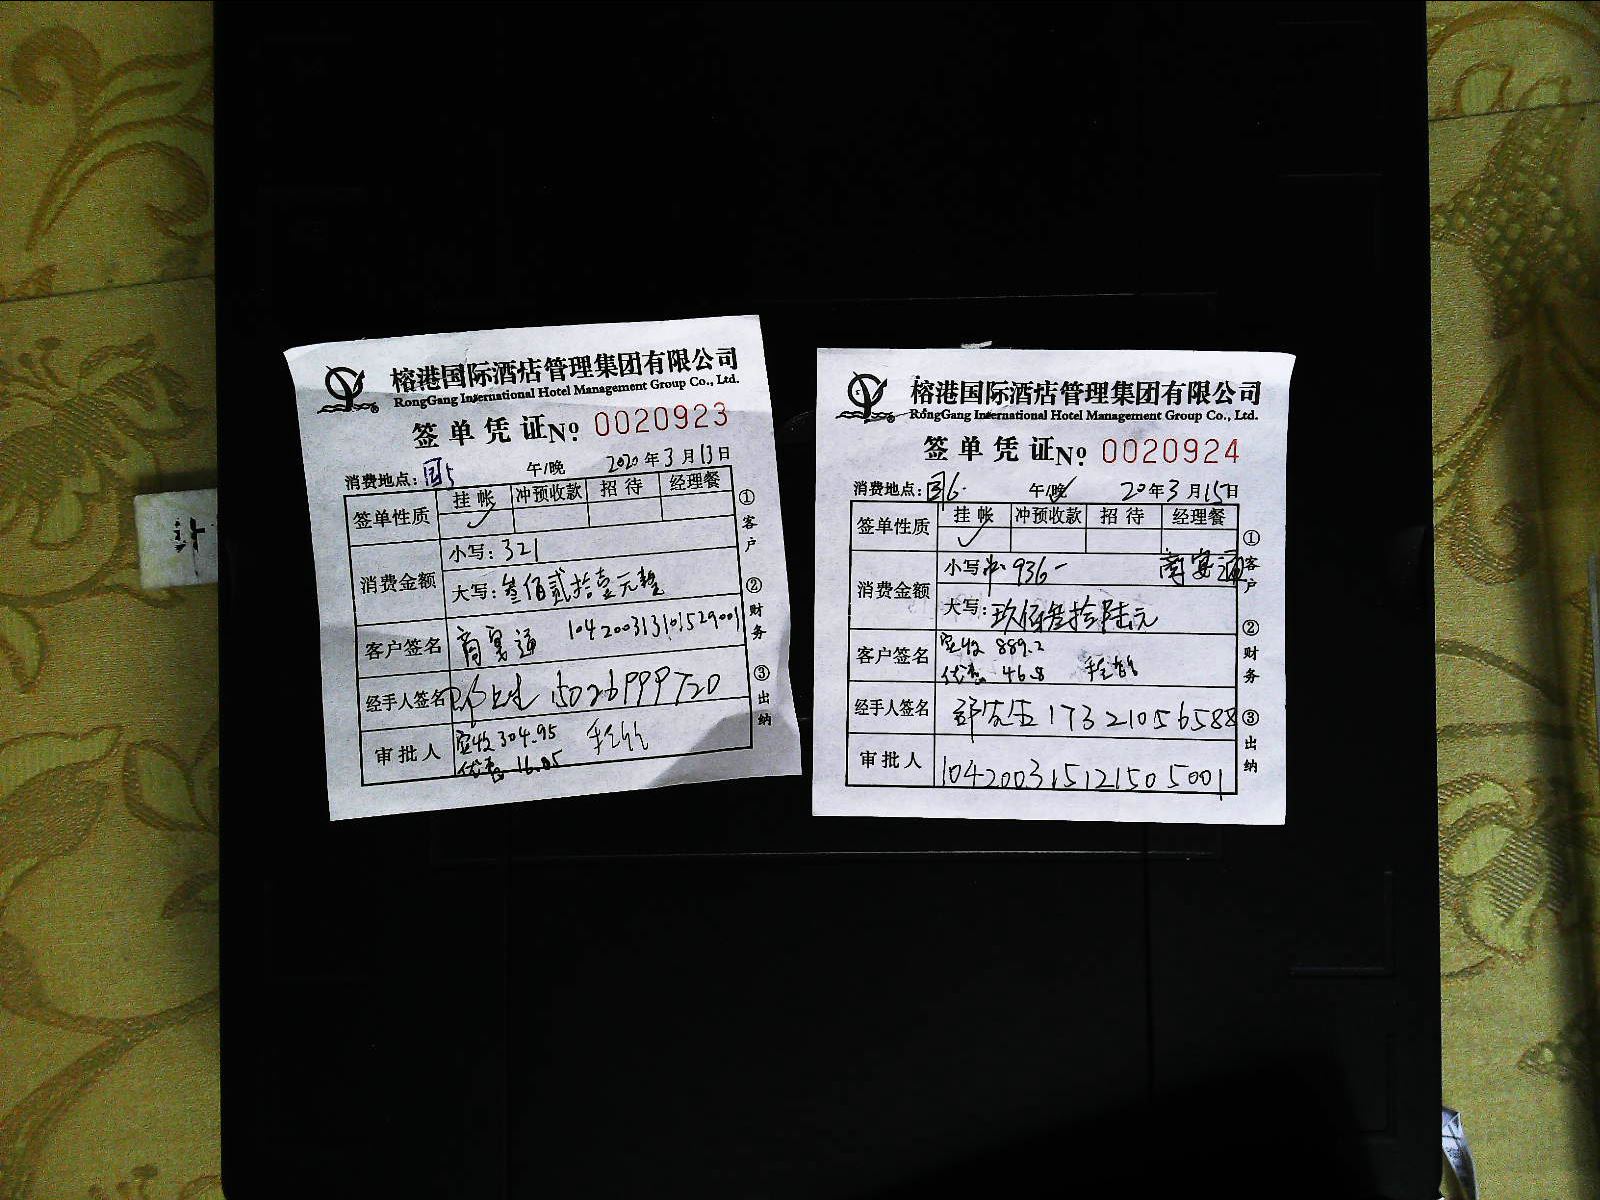 榕港国际酒店管理集团有限公司
RongGang International Hotel Management Group Co., Ltd.
签单凭证 No. 0020923
消费地点: 午/晚 2020年3月13日
签单性质 挂帐 冲预收款 招待 经理餐
✓
消费金额 小写: 321
大写: 叁佰贰拾壹元整
客户签名
经手人签名
审批人 实收 304.95
优惠 16.05
①客户 ②财务 ③出纳
榕港国际酒店管理集团有限公司
RongGang International Hotel Management Group Co., Ltd.
签单凭证 No. 0020924
消费地点: 午/晚 20年3月15日
签单性质 挂帐 冲预收款 招待 经理餐
✓
消费金额 小写 936-
大写: 玖佰叁拾陆元
客户签名 实收 889.2
优惠 46.8
经手人签名 17321056588
审批人 104200315121505001
①客户 ②财务 ③出纳